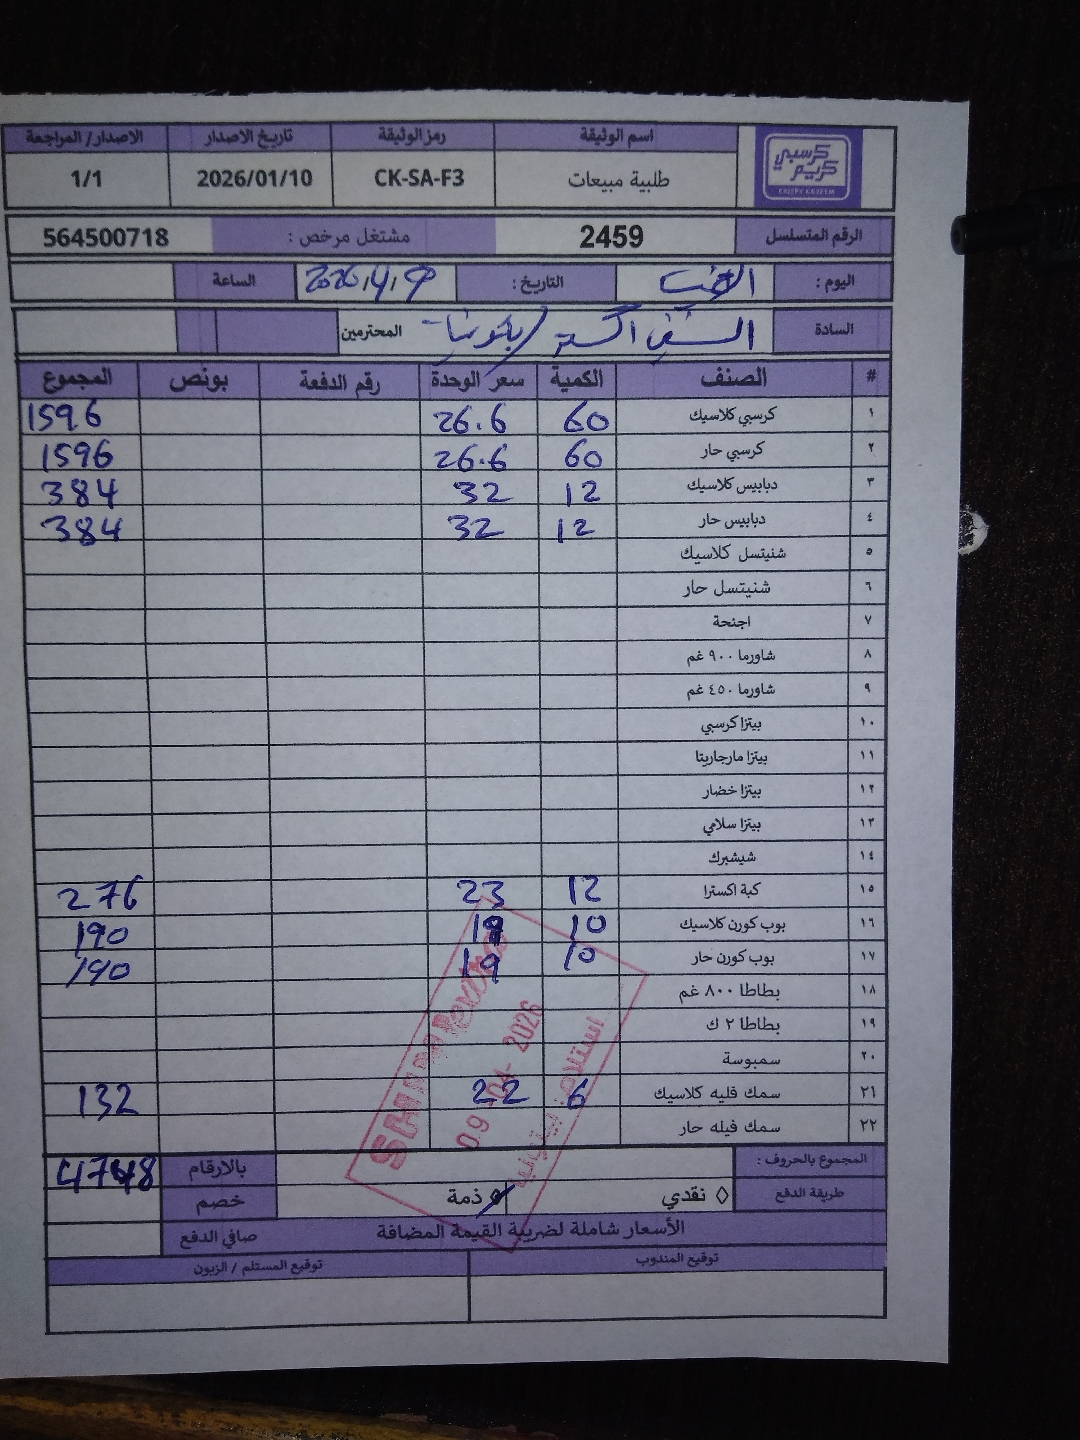 كرسبي كريم
CRISPY KAREEM
اسم الوثيقة رمز الوثيقة تاريخ الاصدار الاصدار/المراجعة
طلبية مبيعات CK-SA-F3 2026/01/10 1/1
الرقم المتسلسل 2459 مشتغل مرخص : 564500718
اليوم : التاريخ : 2026/4/9 الساعة
السادة المحترمين
# الصنف الكمية سعر الوحدة رقم الدفعة بونص المجموع
١ كرسبي كلاسيك 60 26.6 1596
٢ كرسبي حار 60 26.6 1596
٣ دبابيس كلاسيك 12 32 384
٤ دبابيس حار 12 32 384
٥ شنيتسل كلاسيك
٦ شنيتسل حار
٧ اجنحة
٨ شاورما ٩٠٠ غم
٩ شاورما ٤٥٠ غم
١٠ بيتزا كرسبي
١١ بيتزا مارجاريتا
١٢ بيتزا خضار
١٣ بيتزا سلامي
١٤ شيشبرك
١٥ كبة اكسترا 12 23 276
١٦ بوب كورن كلاسيك 10 19 190
١٧ بوب كورن حار 10 19 190
١٨ بطاطا ٨٠٠ غم
١٩ بطاطا ٢ ك
٢٠ سمبوسة
٢١ سمك فليه كلاسيك 6 22 132
٢٢ سمك فيله حار
09 -04- 2026
المجموع بالحروف : بالارقام 4748
طريقة الدفع ◊ نقدي ذمة خصم
الأسعار شاملة لضريبة القيمة المضافة صافي الدفع
توقيع المندوب توقيع المستلم / الزبون